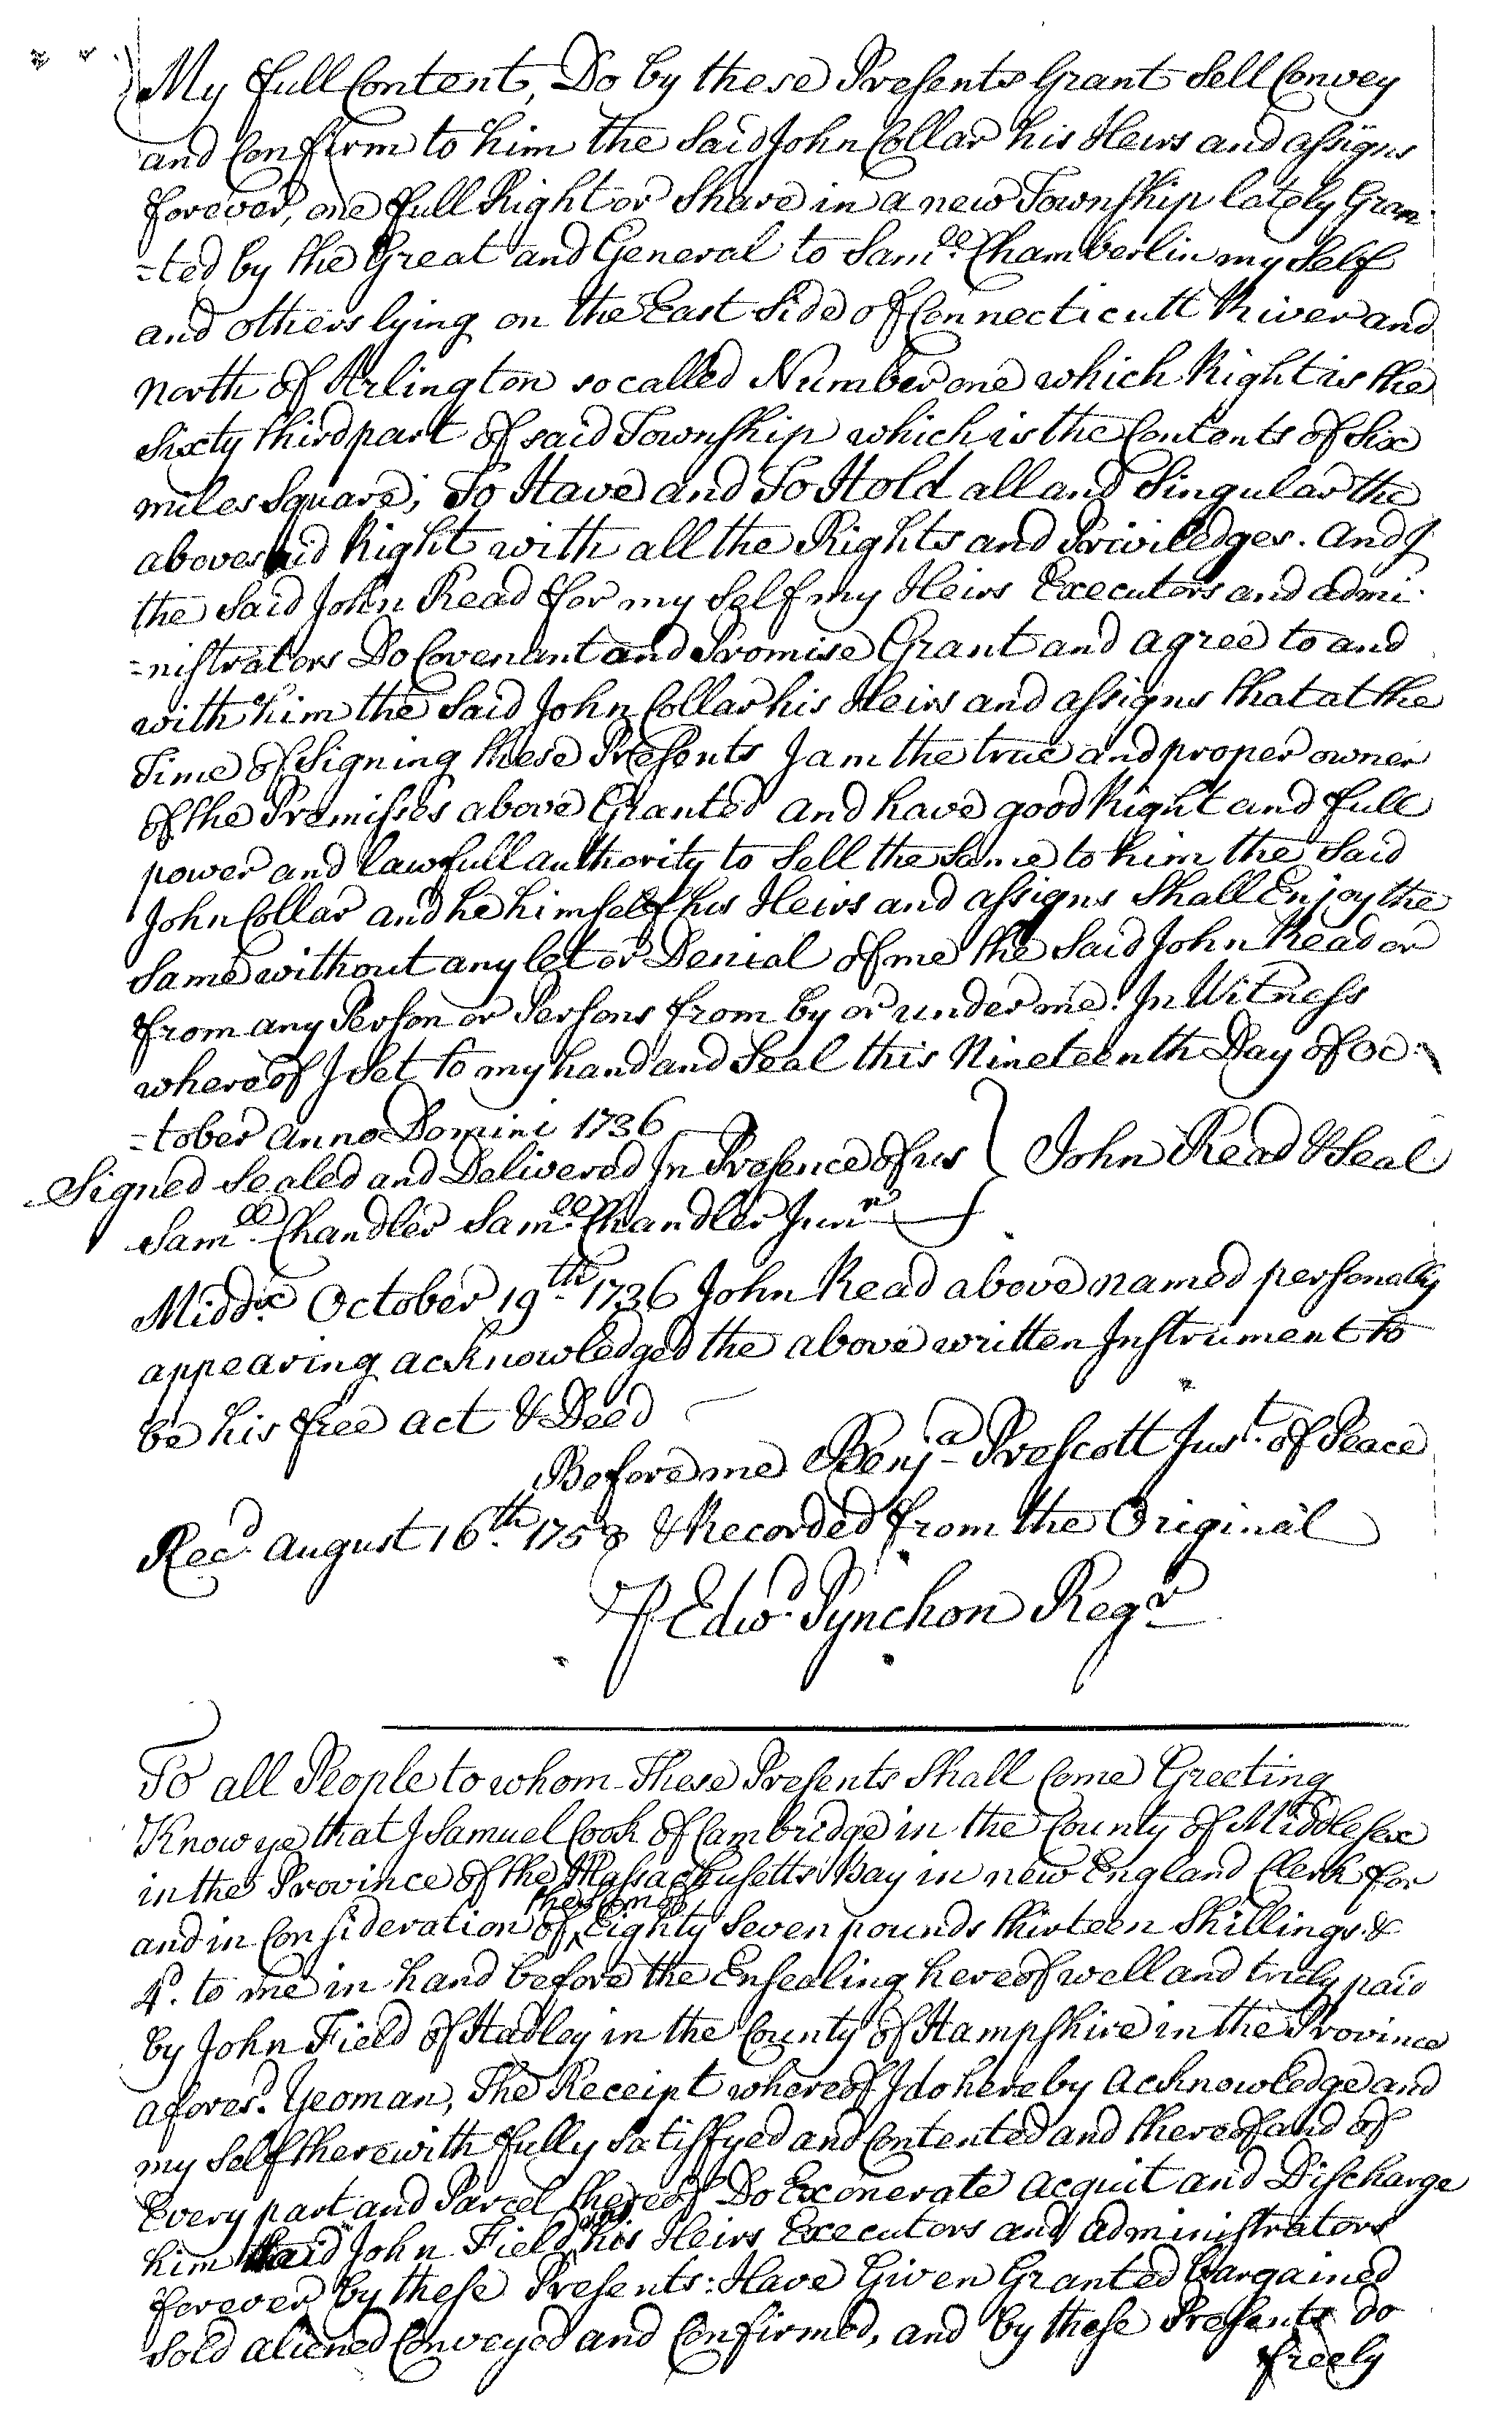 My full Content, Do by these Presents Grant Sell Convey
and Confirm to him the Said John Collar his Heirs and assigns
forever, one full Right or Share in a new Township lately Gran
=ted by the Great and General to Samll. Chamberlin my Self
and others lying on the East Side of Connecticutt River and
North of Arlington so called Number one which Right is the
Sixty third part of said Township which is the Contents of Six
miles Square; To Have and To Hold all and Singular the
abovesaid Right with all the Rights and Priviledges. And I
the Said John Read for my Self my Heirs Executors and admi
=nistrators Do Covenant and Promise Grant and agree to and
with him the Said John Collar his Heirs and assigns that at the
Time of Signing these Presents I am the true and proper owner
of the Premisses above Granted and have good Right and full
power and lawfull authority to Sell the Same to him the Said
John Collar and he himself his Heirs and assigns Shall Enjoy the
Same without any let or Denial of me the Said John Read or
from any Person or Persons from by or under me: In Witness
whereof I Set to my hand and Seal this Nineteenth Day of Oc
=tober anno Domini 1736
Signed Sealed and Delivered In Presence of us } John Read & Seal
Samll. Chandler Samll. Chandler Junr
Middx. October 19th. 1736 John Read above named personally
appearing acknowledged the above written Instrument to
be his free act & Deed
Before me Benja Prescott Just. of Peace
Recd. August 16th. 1758 & Recorded from the Original
℘ Edwd. Pynchon Regr
To all People to whom These Presents Shall Come Greeting
Know ye that I Samuel Cook of Cambridge in the County of Middlesex
in the Province of the Massachusetts Bay in new England Clerk for
and in Consideration of the Sum of Eighty Seven pounds thirteen Shillings &
4d. to me in hand before the Ensealing hereof well and truly paid
by John Field of Hadley in the County of Hampshire in the Province
afores.d Yeoman, The Receipt whereof I do hereby Acknowledge and
my Self therewith fully Satisfyed and Contented and thereof and of
Every part and Parcel thereof Do Exonerate acquit and Discharge
him Said John Field and his Heirs Executors and Administrators
forever by these Presents: Have Given Granted Bargained
Sold aliened Conveyed and Confirmed, and by these Presents do
freely